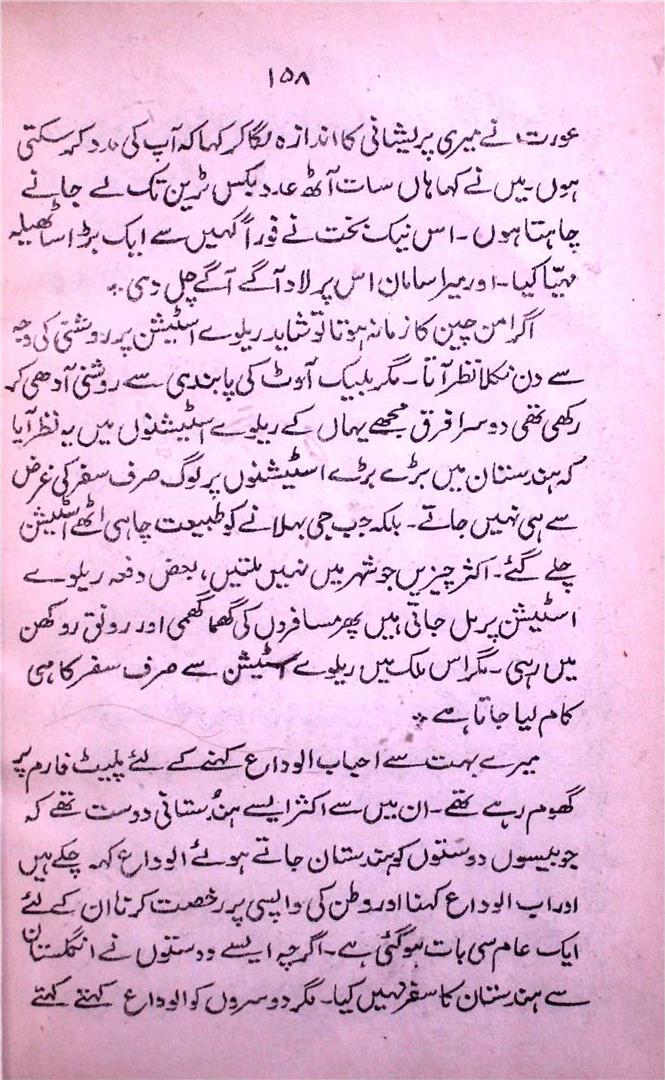 ۱۵۸
عورت نے میری پریشانی کا اندازہ لگا کر کہا کہ آپ کی مدد کر سکتی
ہوں۔ میں نے کہا ہاں سات آٹھ عدد بکس ٹرین تک لے جانے
چاہتا ہوں۔ اس نیک بخت نے فوراً کہیں سے ایک بڑا سا ٹھیلہ
مہیّا کیا۔ اور میرا سامان اس پر لاد آگے آگے چل دی۔
اگر امن چین کا زمانہ ہوتا تو شاید ریلوے اسٹیشن پر روشنی کی وجہ
سے دن نکلا نظر آتا۔ مگر بلیک آوٹ کی پابندی سے روشنی آدھی کر
رکھی تھی دوسرا فرق مجھے یہاں کے ریلوے اسٹیشنوں میں یہ نظر آیا
کہ ہندستان میں بڑے بڑے اسٹیشنوں پر لوگ صرف سفر کی غرض
سے ہی نہیں جاتے۔ بلکہ جب جی بہلانے کو طبیعت چاہی اٹھے اسٹیشن
چلے گئے۔ اکثر چیزیں جو شہر میں نہیں ملتیں، بعض دفعہ ریلوے
اسٹیشن پر مل جاتی ہیں پھر مسافروں کی گھما گھمی اور رونق روکھن
میں رہی۔ مگر اس ملک میں ریلوے اسٹیشن سے صرف سفر کا ہی
کام لیا جاتا ہے۔
میرے بہت سے احباب الوداع کہنے کے لئے پلیٹ فارم پر
گھوم رہے تھے۔ ان میں سے اکثر ایسے ہندُستانی دوست تھے کہ
جو بیسوں دوستوں کو ہندستان جاتے ہوئے الوداع کہہ چکے ہیں
اور اب الوداع کہنا اور وطن کی واپسی پر رخصت کرنا ان کے لئے
ایک عام سی بات ہو گئی ہے۔ اگرچہ ایسے دوستوں نے انگلستان
سے ہندستان کا سفر نہیں کیا۔ مگر دوسروں کو الوداع کہتے کہتے